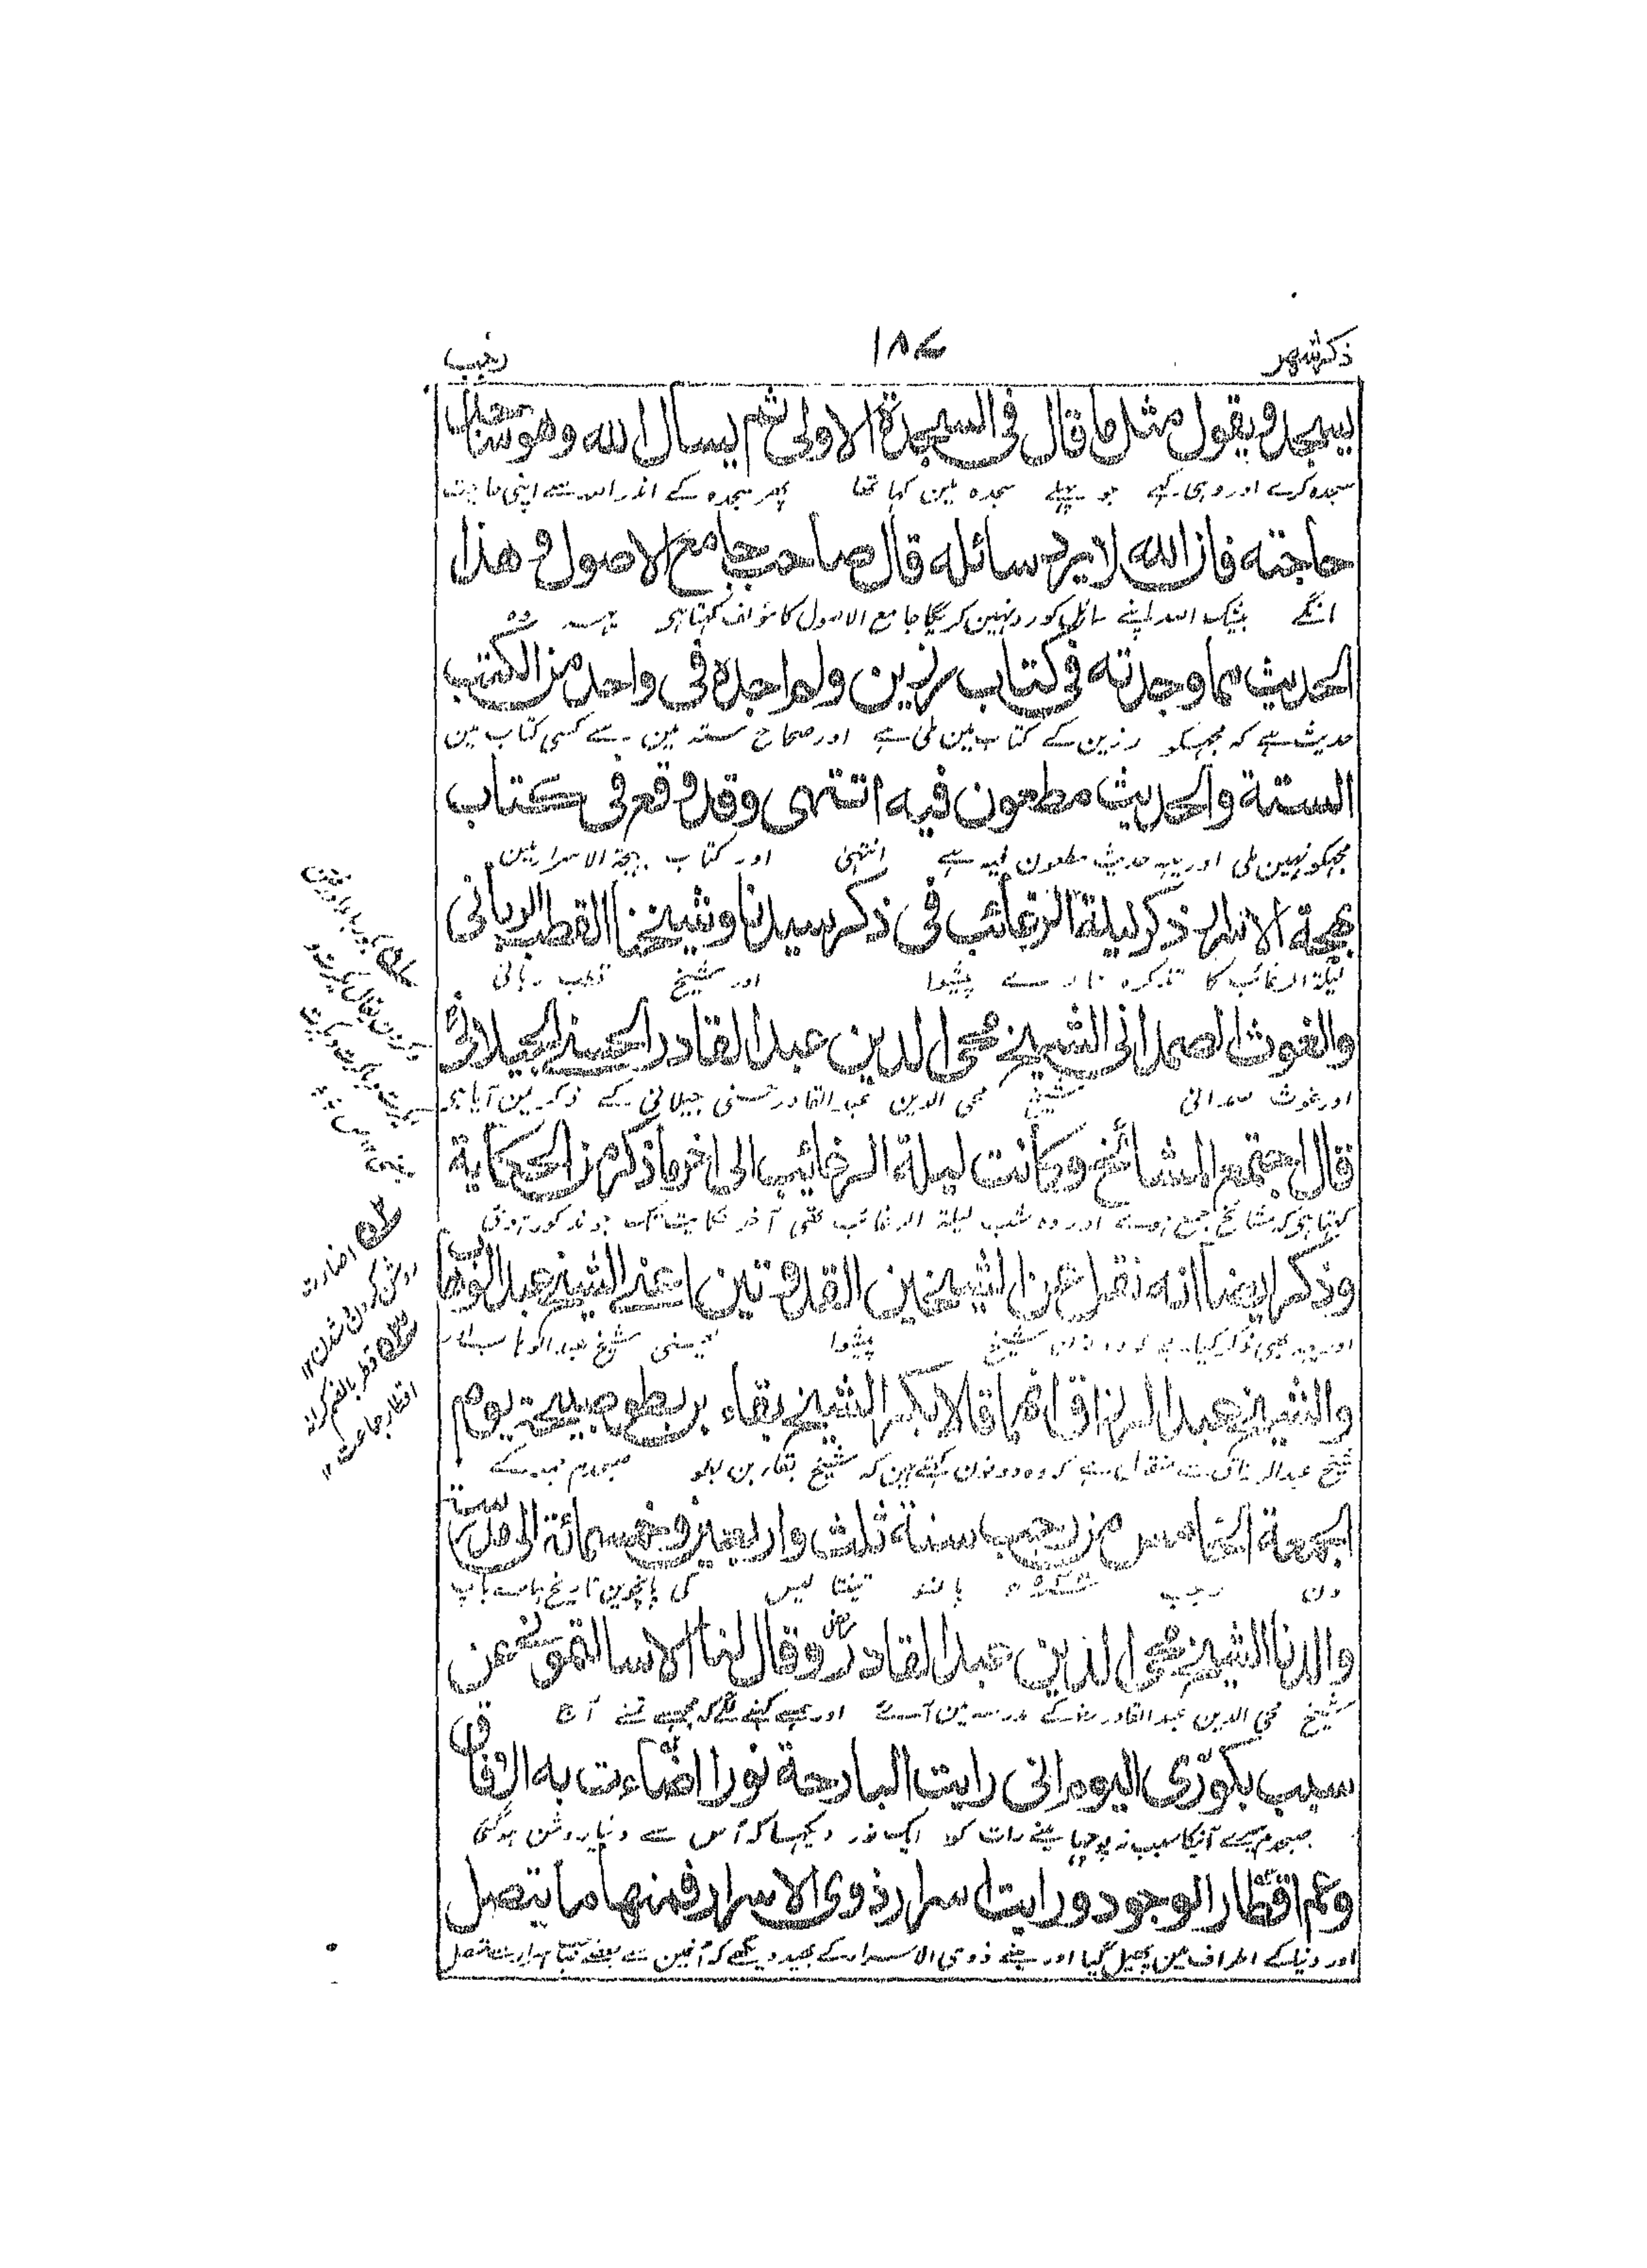 ذکر شہر ١٨٧ رجب
يسجد ويقول مثل ما قال فى السجدة الاولى ثم يسال الله وهو ساجد
سجدہ کرے اور وہی کہے جو پہلے سجدہ مین کہا تھا پھر سجدہ کے اندر اللہ سے اپنی حاجت
حاجته فان الله لا يرد سائله قال صاحب جامع الاصول وهذا
مانگے بیشک اللہ اپنے سائل کو رد نہین کریگا جامع الاصول کا مؤلف کہتا ہی
الحديث مما وجدته فى كتاب رزين ولم اجده فى واحد من الكتب
حدیث ہے کہ مجہکو رزین کے کتاب مین ملی ہے اور صحاح ستہ مین سے کسی کتاب مین
الستة والحديث مطعون فيه انتهى وقد وقع فى كتاب
مجہکو نہین ملی اور یہہ حدیث مطعون فیہ ہے انتہیٰ اور کتاب بہجۃ الاسرار مین
بهجة الاسرار ذكر ليلة الرغائب فى ذكر سيدنا وشيخنا القطب الربانى
لیلۃ الرغائب کا تذکرہ پیشوا اور شیخ قطب ربانی
والغوث الصمدانى الشيخ محى الدين عبد القادر الحسنى الجيلانى
اور غوث صمدانی شیخ محی الدین عبد القادر حسنی جیلانی کے ذکر مین آیا ہی
قال اجتمع المشائخ وكانت ليلة الرغائب الى اخر ما ذكر من الحكاية
کہتا ہی کہ مشائخ جمع ہوے اور وہ شب لیلۃ الرغائب تھی آخر حکایت تک جو مذکور ہوئی
وذكر ايضا انه نقل عن الشيخين القدوتين اعنى الشيخ عبد الوهاب
اور یہہ بھی ذکر کیا شیخ پیشوا یعنی شیخ عبد الوہاب
والشيخ عبد الرزاق انهما قالا بكر الشيخ بقاء بن بطو صبيحة يوم
شیخ عبد الرزاق سے منقول ہے کہ وہ دونون کہتے ہین کہ شیخ بقاء بن بطو صبحدم جمعہ کے
الجمعة الخامس من رجب سنة ثلث واربعين وخمسمائة الى مدرسة
دن رجب پانسو تینتالیس کی پانچوین تاریخ ہمارے باپ
والدنا الشيخ محى الدين عبد القادر رض وقال لنا الا سالتمونى عن
شیخ محی الدین عبد القادر کے مدرسہ مین آئے اور ہمسے کہنے لگے کہ مجہسے تمنے آج
سبب بكورى اليوم انى رايت البارحة نورا اضاءت به الافاق
صبحدم میرے آنیکا سبب نہ پوچہا مینے رات کو ایک نور دیکہا کہ اُس سے دنیا روشن ہوگئی
وعم اقطار الوجود ورايت اسرار ذوى الاسرار فمنها ما يتصل
اور دنیا کے اطراف مین پھیل گیا اور مینے ذوی الاسرار کے بھید دیکھے کہ اُنمین سے بعضے
اضاءت
روشن کردن و شدن ١٢
قطر بالضم کرانہ
اقطار جماعت ١٢